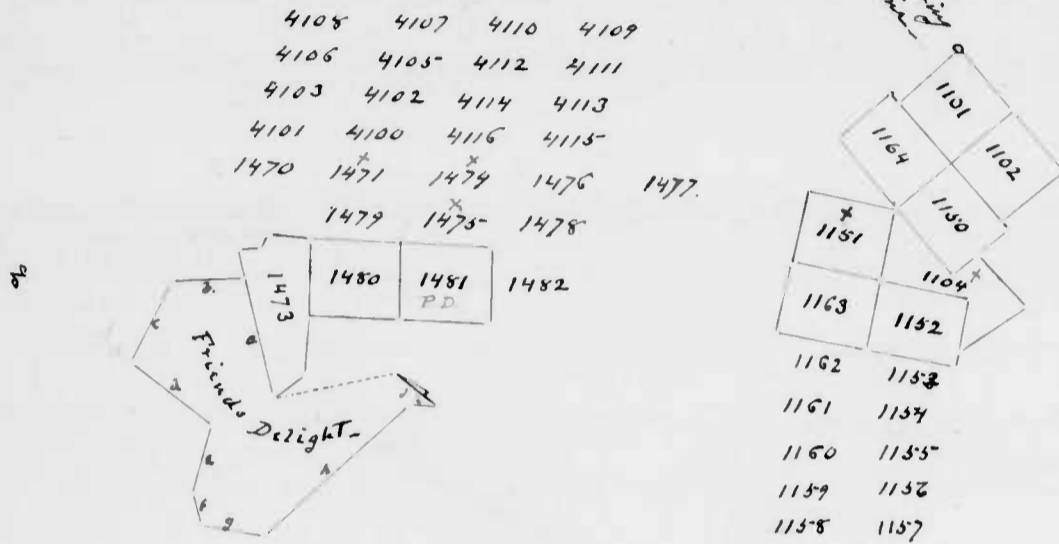 4108 4107 4110 4109
4106 4105 4112 4111
4103 4102 4114 4113
4101 4100 4116 4115
1470 1471 1474 1476 1477.
1479 1475 1478
1473 1480 1481 1482
P.D.
Friends Delight
1101
1164 1102
1150
1151
1104
1163 1152
1162 1153
1161 1154
1160 1155
1159 1156
1158 1157